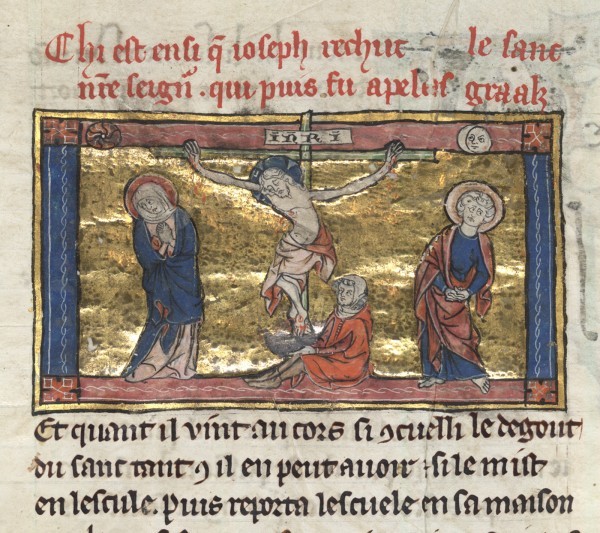 Chi est ensi q̄ ioseph rechut le sanc
nr̄e seign᷑ . qui puis fu apeles graalz
inri
Et quant il vint au cors si ꝯcuelli le degout
du sanc tant ꝯ il en peut auoir . si le mist
en lescuele. Puis reporta lescuele en sa maison